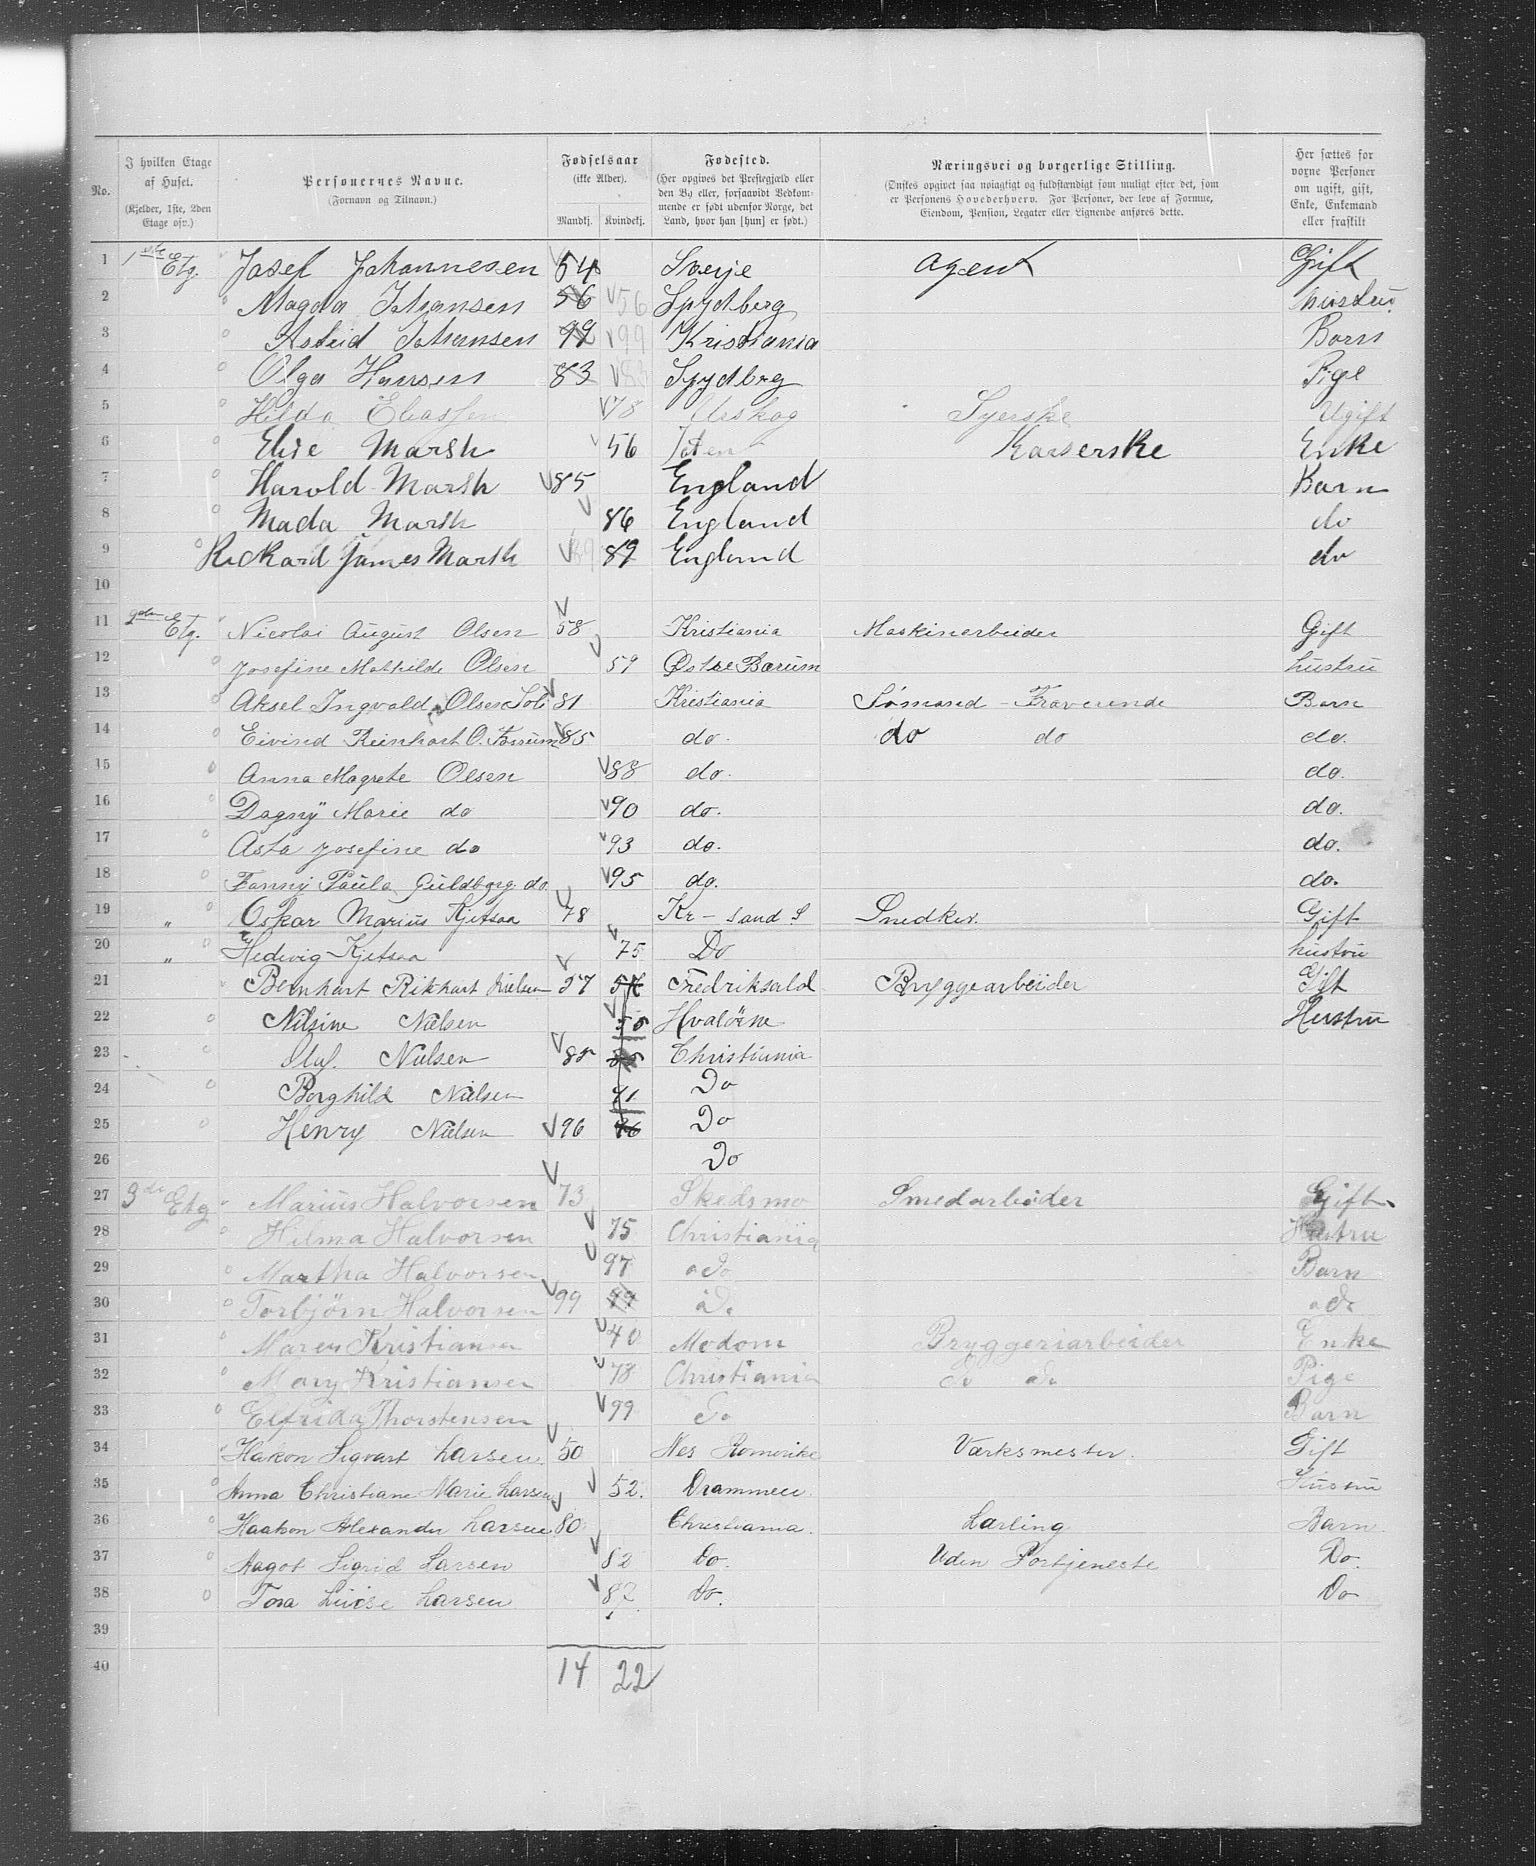 No. I hvilken Etage af Huset. (Kjelder, 1ste, 2den Etage osv.) Personernes Navne. (Fornavn og Tilnavn.) Fødselsaar (ikke Alder). Mandkj. Kvindekj. Fødested. (Her opgives det Prestegjæld eller den By eller, forsaavidt Vedkommende er født udenfor Norge, det Land, hvor han [hun] er født.) Næringsvei og borgerlige Stilling. (Ønskes opgivet saa nøiagtigt og fuldstændigt som muligt efter det, som er Personens Hovederhverv. For Personer, der leve af Formue, Eiendom, Pension, Legater eller Lignende anføres dette. Her sættes for voxne Personer om ugift, gift, Enke, Enkemand eller fraskilt
1 1ste Etg. Josef Johannesen 54 Sverje agent Gift
2 Magda Johansen 56 56 Spydberg Hustru
3 Astrid Johansen 99 99 Kristiania Barn
4 Olga Hansen 83 83 Spydbrg Pige
5 Hilda Eliassen 78 Urskog Syerske Ugift
6 Elise Marsh 56 Toten Kaserske Enke
7 Harold Marsh 85 England Barn
8 Mada Marsh 86 England do
9 Rickard James Marsh 89 89 England do
10
11 2den Etg. Nicolai August Olsen 58 Kristiania Maskinarbeider Gift
12 Josefine Mathilde Olsen 59 Østre Bærum hustru
13 Aksel Ingvald Olsen 81 Kristiania Sømand - Fraverende Barn
14 Eivind Reinhart O. 85 do. do do do.
15 Anna Magrete Olsen 88 do. do.
16 Dagny Marie do 90 do. do.
17 Asta Josefine do 93 do. do.
18 Fanny Paula Guldborg do 95 do. do.
19 „ Oskar Marius Kjetsaa 78 Kr-sand S Snedker. Gift
20 „ Hedevig Kjetsaa 75 Do hustru
21 Bernhart Rikhart Nielsen 57 Fredriksald Bryggearbeider Gift
22 Nilsine Nielsen 55 Hvaløerne Hustru
23 Oluf. Nielsen 88 Christiania
24 Borghild Nielsen 91 Do
25 Henry Nielsen 96 96 Do
26 Do
27 3die Etg Marius Halvorsen 73 Skedsmo Smedarbeider Gift
28 Hilma Halvorsen 75 Christiania Hustru
29 Martha Halvorsen 97 do Barn
30 Torbjørn Halvorsen 99 99 do do
31 Maren Kristiansen 40 Modom Bryggeriarbeider Enke
32 Mary Kristiansen 78 Christiania do do Pige
33 Elfrida Thorstensen 99 do Barn
34 Hakon Sigvart Larsen 50 Nes Romerike Værksmester. Gift
35 Anna Christiane Marie Larsen 52. Drammen Hustru
36 Haakon Alexander Larsen 80 Christiania. Lærling Barn
37 Aagot Sigrid Larsen 82 Do. Uden Fortjeneste Do.
38 Tora Lovise Larsen 87 Do. Do
39
40 14 22